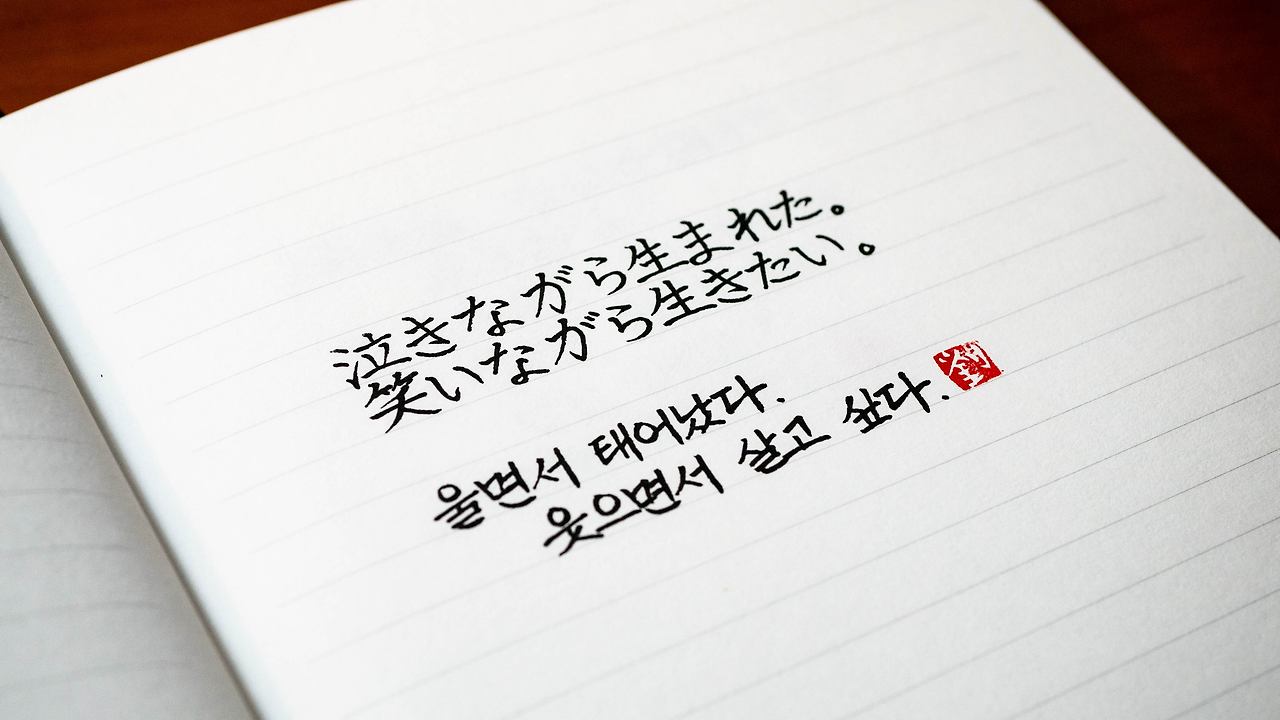 泣きながら生まれた。
笑いながら生きたい。
울면서 태어났다.
웃으면서 살고 싶다.